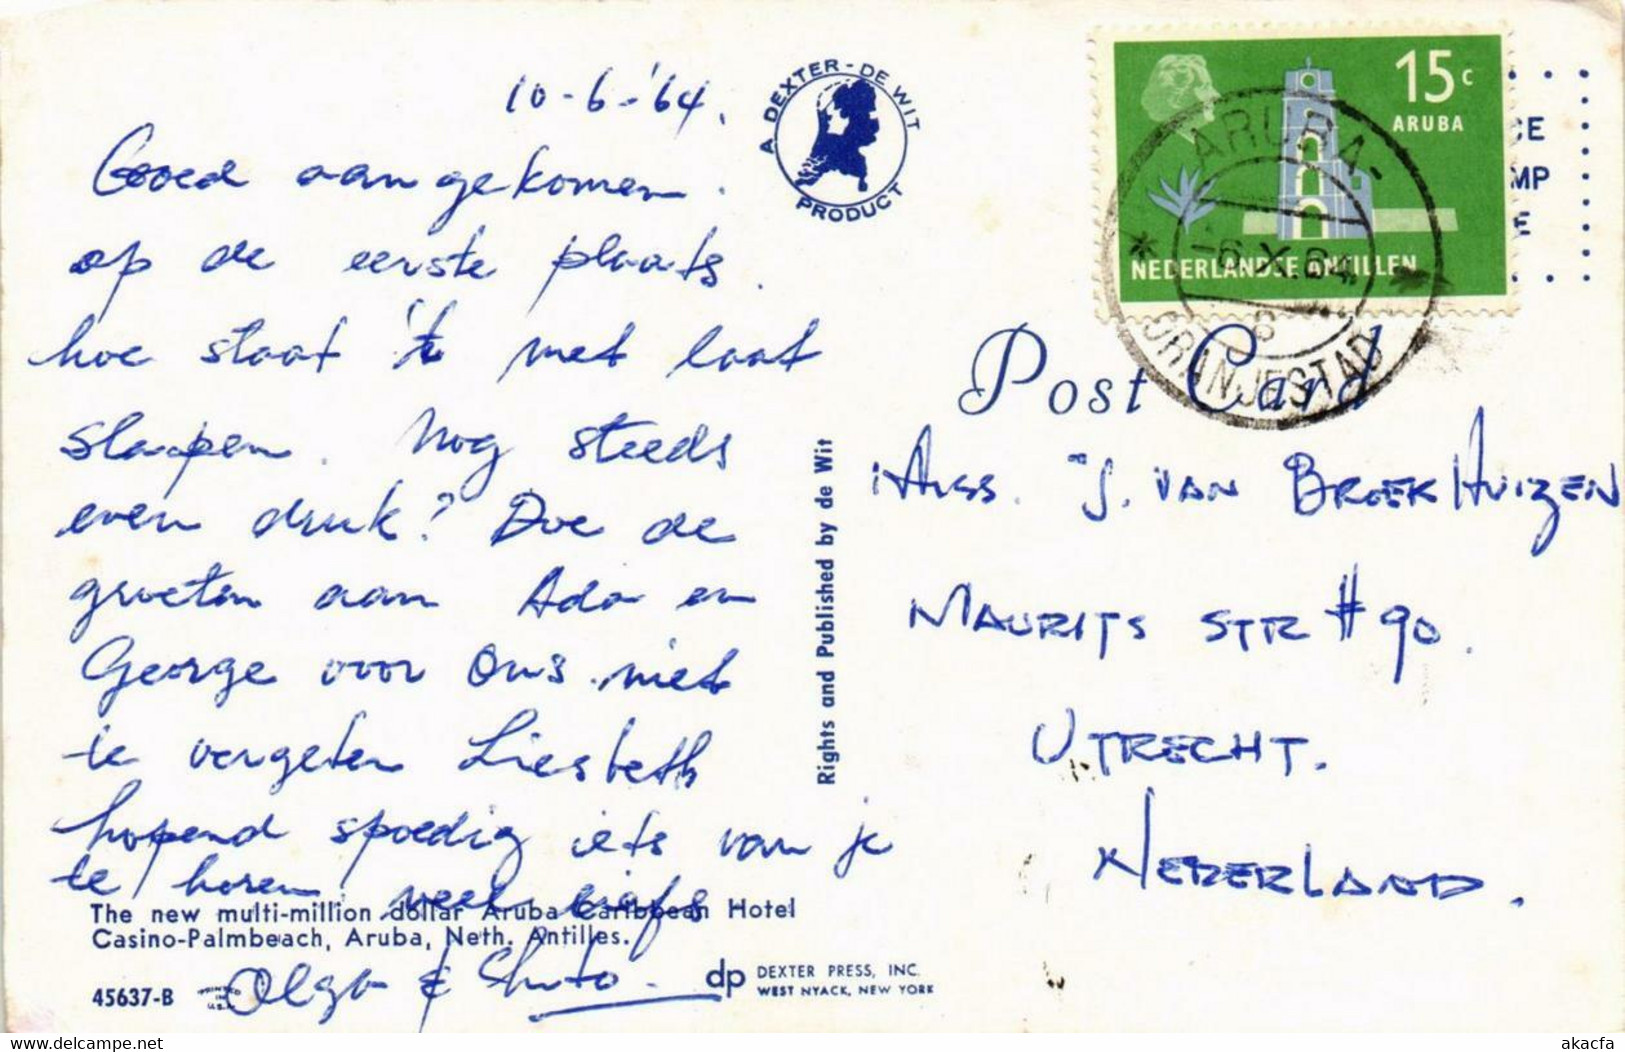 10-6-'64.
Goed aangekomen.
op de eerste plaats.
hoe staat 't met laat
slapen. Nog steeds
even druk? Doe de
groeten aan Ada en
George voor ons. niet
te vergeten Liesbeth
hopend spoedig iets van je
te horen. veel liefs
Olga &
A DEXTER-DE WIT
PRODUCT
The new multi-million dollar Aruba Caribbean Hotel
Casino-Palmbeach, Aruba, Neth. Antilles.
45637-B
PRINTED
IN
U.S.A.
dp DEXTER PRESS, INC.
WEST NYACK, NEW YORK
Rights and Published by de Wit
15c
ARUBA
NEDERLANDSE ANTILLEN
ARUBA-
-6.X.64
ORANJESTAD
CE
MP
E
Post Card
Miss. J. VAN BROEKHUIZEN
MAURITS STR # 90.
UTRECHT.
NEDERLAND.
akacfa